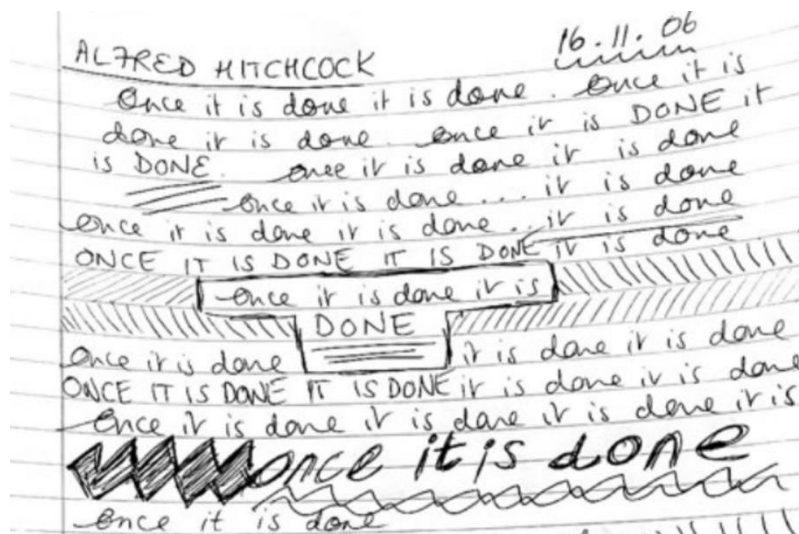 ALFRED HITCHCOCK 16.11.06
Once it is done it is done. Once it is
done it is done. once it is DONE it
is DONE. once it is done it is done
once it is done... it is done
once it is done it is done.. it is done
ONCE IT IS DONE IT IS DONE it is done
once it is done it is
DONE
once it is done it is done it is done
ONCE IT IS DONE IT IS DONE it is done it is done
once it is done it is done it is done it is
once it is done
once it is done